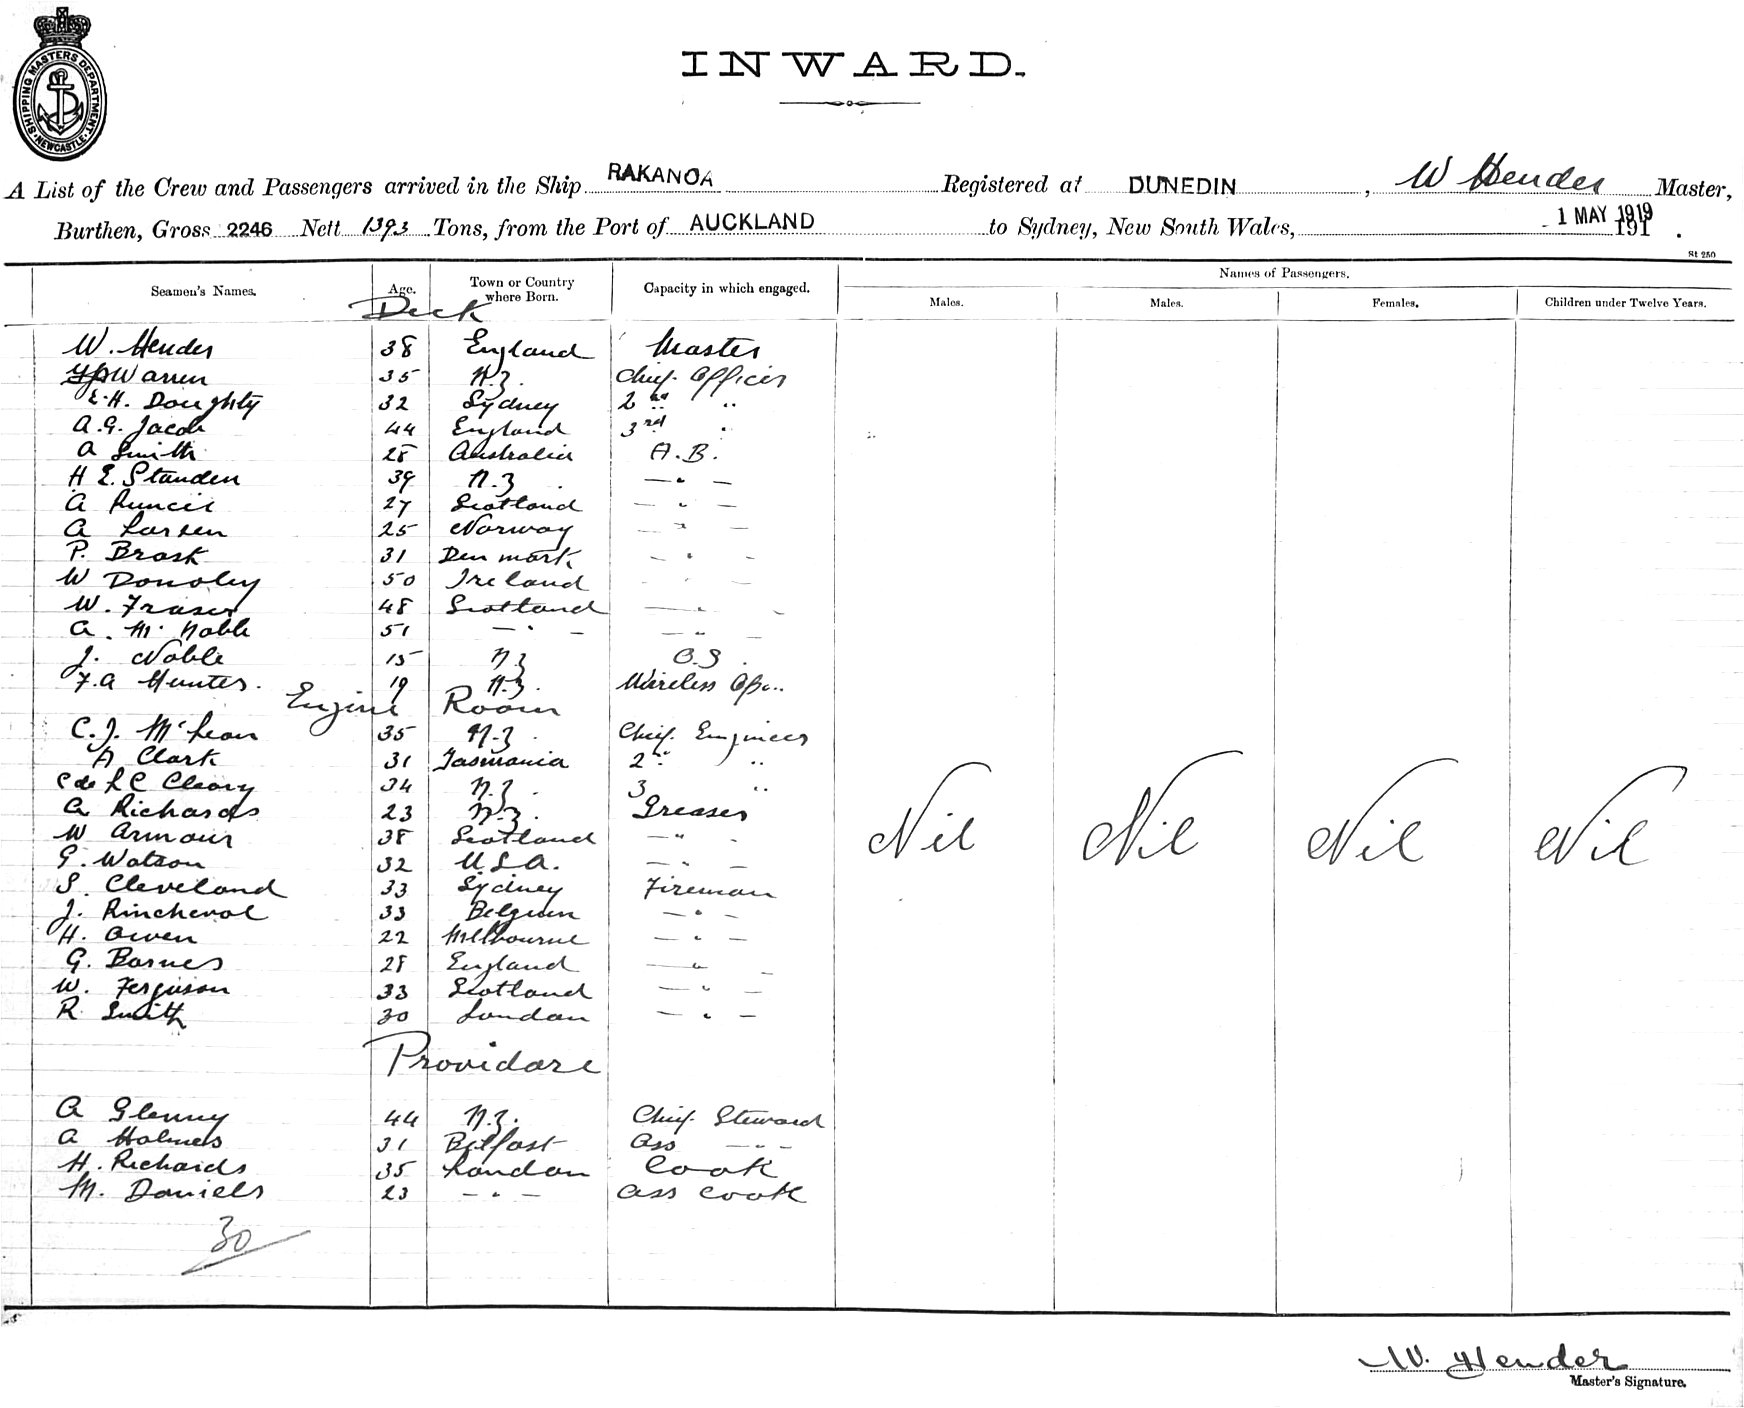 SHIPPING MASTERS DEPARTMENT. NEWCASTLE.
INWARD.
A List of the Crew and Passengers arrived in the Ship RAKANOA Registered at DUNEDIN, W Hender Master,
Burthen, Gross 2246 Nett 1393 Tons, from the Port of AUCKLAND to Sydney, New South Wales, 1 MAY 1919 191 .
St 250
Names of Passengers.
Seamen's Names. Age. Town or Country where Born. Capacity in which engaged. Males. Males. Females. Children under Twelve Years.
Deck
W. Hender 38 England Master
Warren 35 N.Z. Chief Officer
E.H. Doughty 32 Sydney 2nd "
A.G. Jacob 44 England 3rd "
A Smith 28 Australia A.B.
H E. Standen 39 N.Z — " —
A Runcie 27 Scotland — " —
A Larsen 25 Norway — " —
P. Brask 31 Denmark — " —
W Donoley 50 Ireland — " —
W. Fraser 48 Scotland — " —
A. M. Noble 51 — " — — " —
J. Noble 15 N Z O.S.
F.A Hunter. 19 N.Z. Wireless Op..
Engine Room
C. J. McLean 35 N.Z. Chief Engineer
A Clark 31 Tasmania 2nd "
C de L C Cleary 34 N.Z. 3 "
A Richards 23 N.Z. Greaser
W Armour 38 Scotland — " -
G. Watson 32 U.S.A. — " —
S. Cleveland 33 Sydney Fireman
J. Rincheval 33 Belgium — " —
H. Owen 22 Melbourne — " —
G. Barnes 28 England — " —
W. Ferguson 33 Scotland — " —
R. Smith 30 London — " —
Nil Nil Nil Nil
Providore
A Glenny 44 N.Z. Chief Steward
A Holmes 31 Belfast Ass — " -
H. Richards 35 London Cook
M. Daniels 23 — " — Ass Cook
30
W. Hender
Master's Signature.